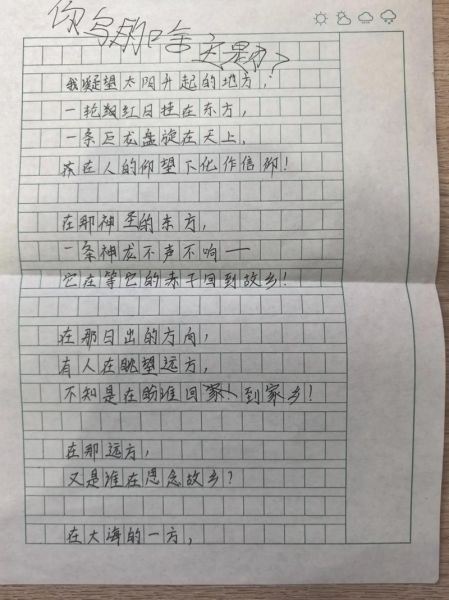 我凝望太阳升起的地方，
一轮红日挂在东方，
一条巨龙盘旋在天上，
在人的仰望下化作信仰！
在那神圣的东方，
一条神龙不声不响——
它在等它的赤子回到故乡！
在那日出的方向，
有人在眺望远方，
不知是在盼谁回到家乡！
在那远方，
又是谁在思念故乡？
在大海的一方，